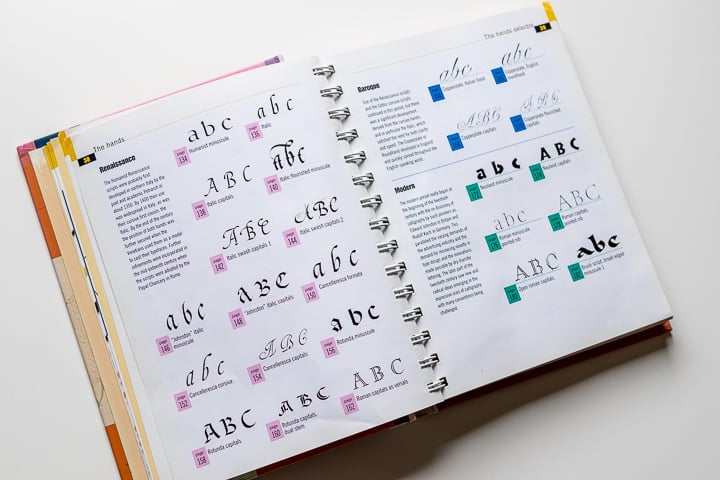 38
The hands
Renaissance
The Humanist Renaissance
scripts were actually first
developed in northern Italy by the
poet and academic Petrarch in
about 1350. By 1400 their use
was widespread in Italy, as was
their cursive first cousin, the
italic. By the end of the century
the position of both hands was
further secured when the
Venetians used them as a model
to cast their typefaces. Further
refinements were incorporated in
the mid sixteenth century when
the scripts were adopted by the
Papal Chancery in Rome.
abc
page 134
Humanist minuscule
abc
page 136
Italic
ABC
page 138
Italic capitals
abc
page 140
Italic flourished minuscule
ABC
page 142
Italic swash capitals 1
ABC
page 144
Italic swash capitals 2
abc
page 146
"Johnston" italic
minuscule
ABC
page 148
"Johnston" italic capitals
abc
page 150
Cancelleresca formata
abc
page 152
Cancelleresca corsiva
ABC
page 154
Cancelleresca capitals
abc
page 156
Rotunda minuscule
ABC
page 158
Rotunda capitals
ABC
page 160
Rotunda capitals,
dual stem
ABC
page 162
Roman capitals as versals
The hands selector
39
Baroque
Use of the Renaissance scripts
and the Gothic cursive scripts
continued in this period, but there
was a significant development
derived from the cursive hands,
and in particular the Italic, which
satisfied the need for both clarity
and speed. The Copperplate or
Roundhand developed in England
and quickly spread throughout the
English speaking world.
abc
page
Copperplate, Italian hand
abc
page
Copperplate, English
roundhand
ABC
page
Copperplate capitals
ABC
page
Copperplate flourished
capitals
Modern
The modern period really began at
the beginning of the twentieth
century with the re-discovery of
calligraphy by such pioneers as
Edward Johnston in Britain and
Rudolf Koch in Germany. This
paralleled the varying demands of
the advertising industry and the
demand for increasing novelty in
type design and the innovations
made possible by dry transfer
lettering. The later part of the
twentieth century saw new and
radical ideas emerging in the
expressive uses of calligraphy
with many conventions being
challenged.
abc
page
Neuland minuscule
ABC
page
Neuland capitals
abc
page
Roman minuscule,
pointed nib
ABC
page
Roman capitals,
pointed nib
ABC
page
Open roman capitals
abc
page
Brush script, broad edged
minuscule 1